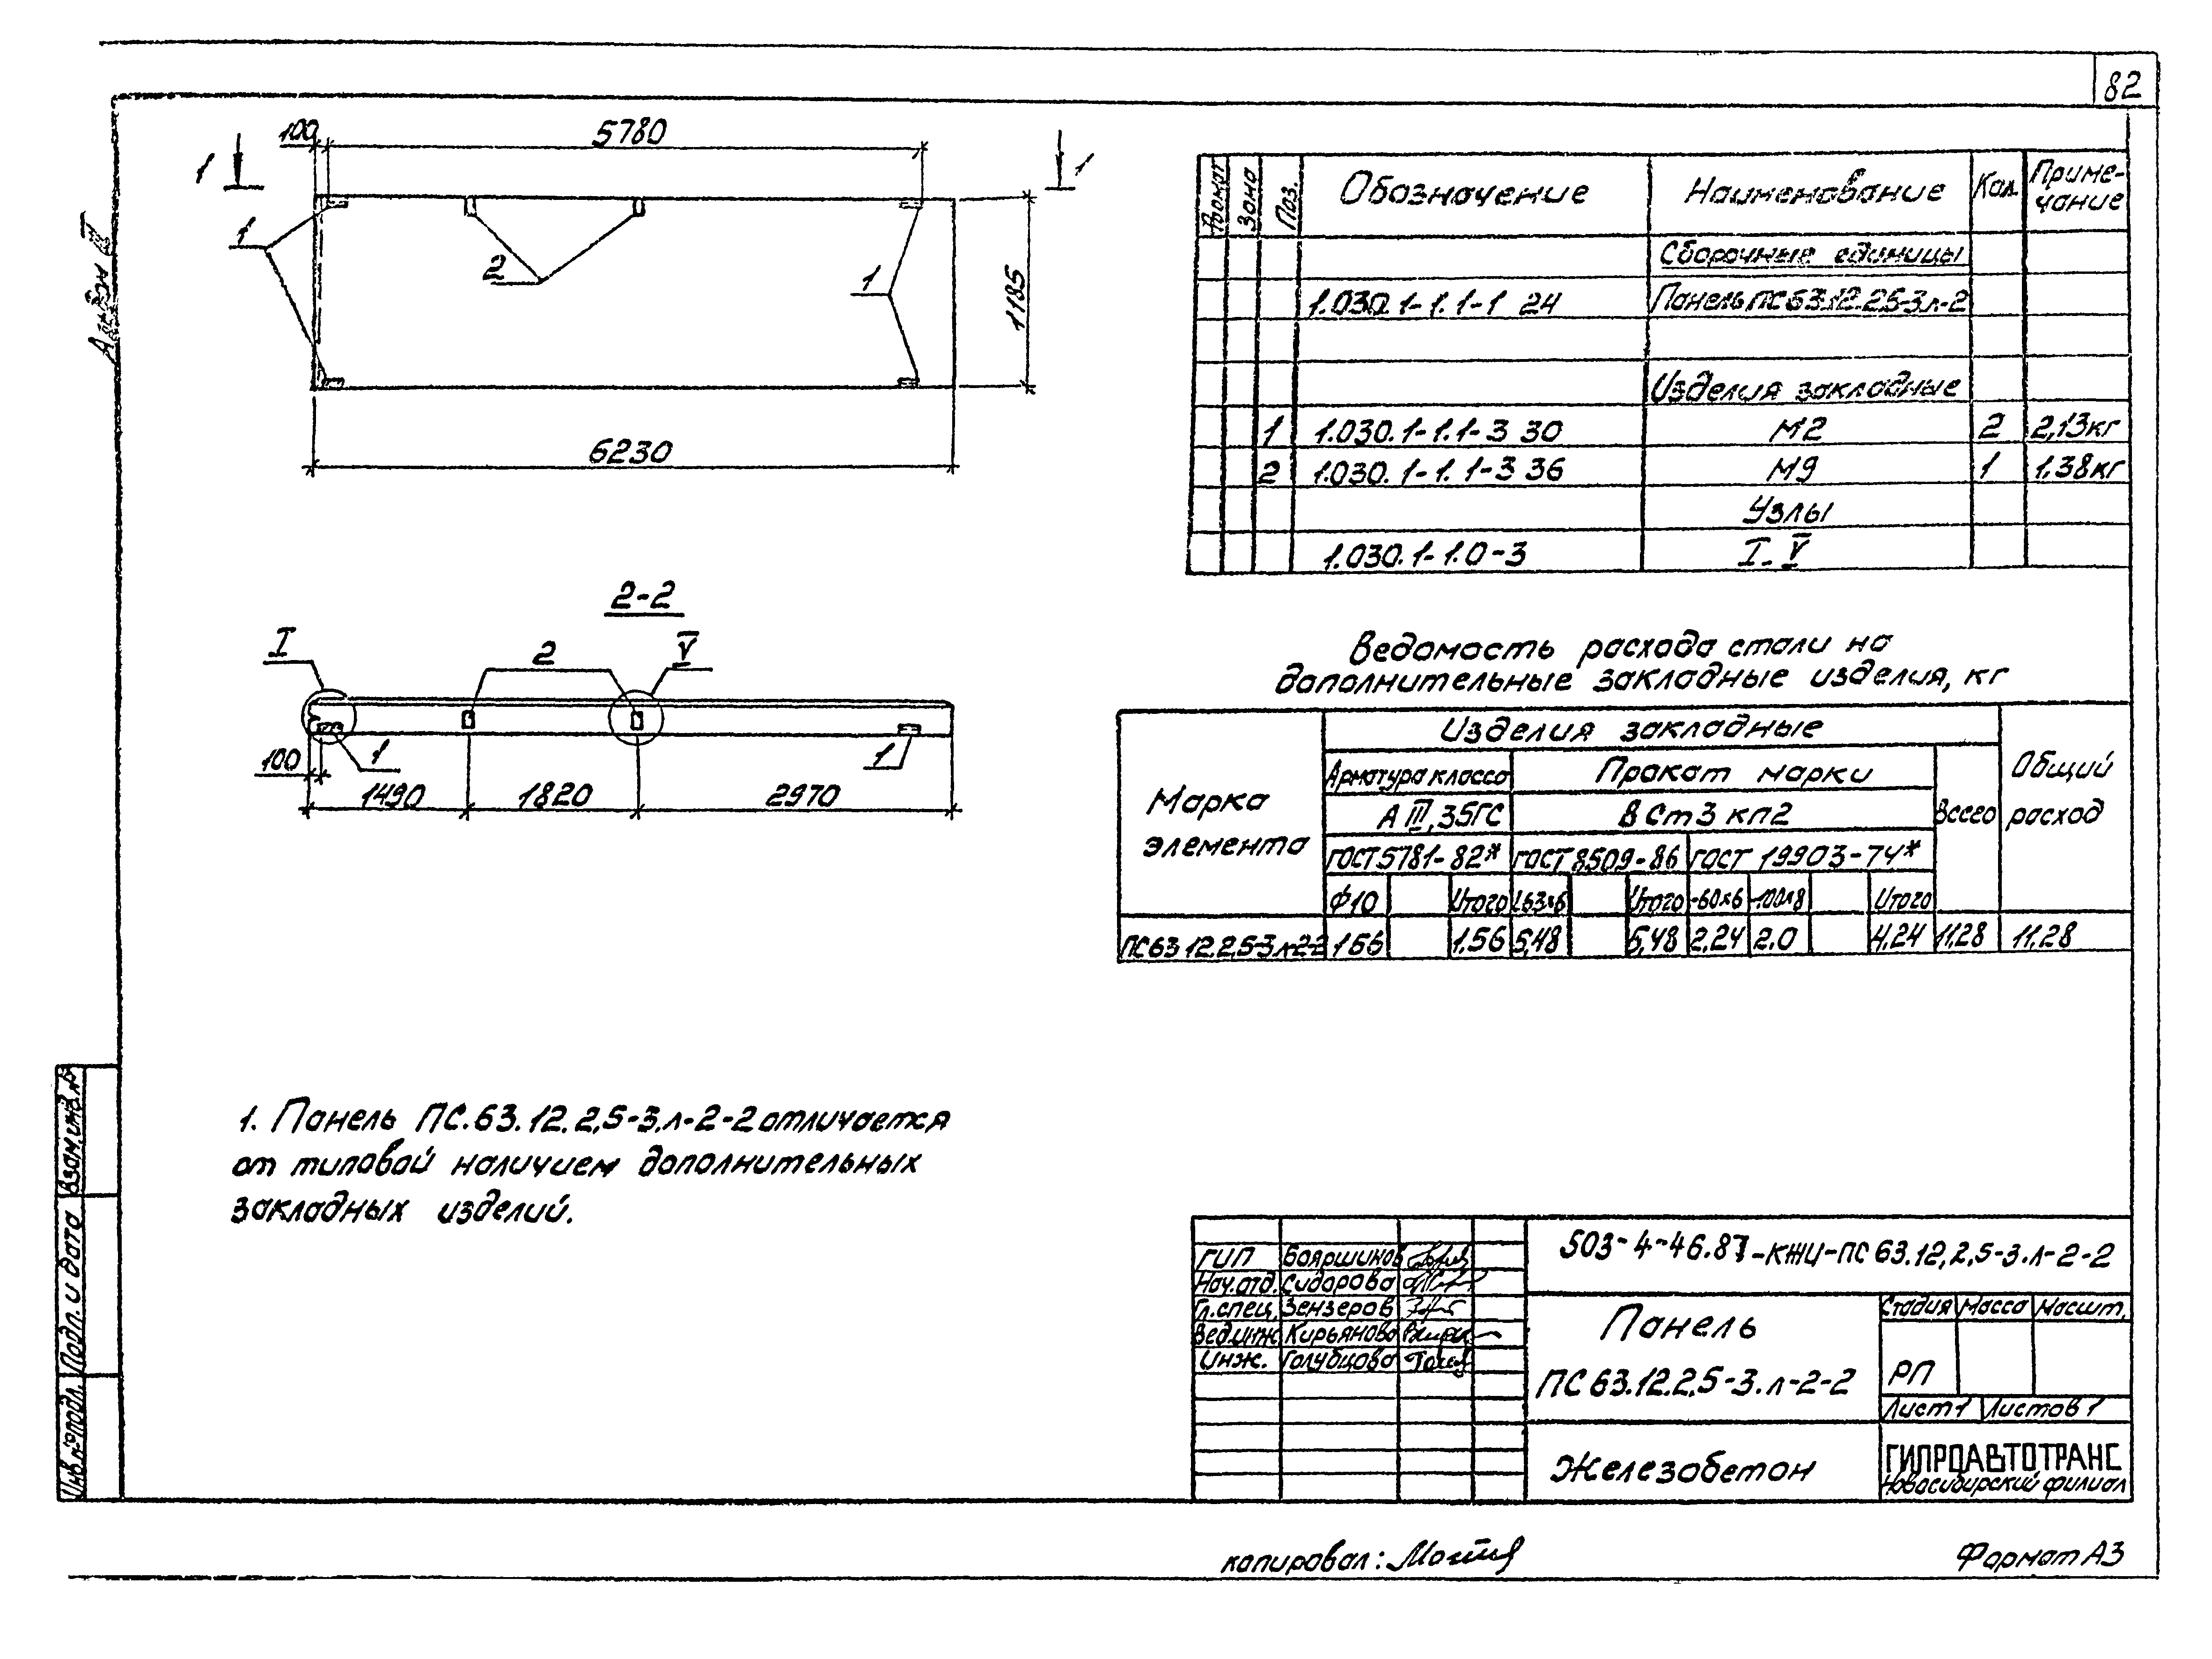 82
Альбом IV
100
5780
1
1
1
2
1
1185
6230
2-2
I
2
V
100
1
1
1490
1820
2970
Формат
Зона
Поз.
Обозначение
Наименование
Кол.
Приме-
чание
Сборочные единицы
1.030.1-1.1-1 24
Панель ПС 63.12.2,5-3л-2
Изделия закладные
1 1.030.1-1.1-3 30 М2 2 2,13кг
2 1.030.1-1.1-3 36 М9 1 1,38кг
Узлы
1.030.1-1.0-3 I-V
Ведомость расхода стали на
дополнительные закладные изделия, кг
Марка
элемента
Изделия закладные
Общий
расход
Арматура класса
Прокат марки
Всего
А III, 35ГС
В Ст3 кп2
ГОСТ 5781-82* ГОСТ 8509-86 ГОСТ 19903-74*
Ф10 Итого L63x6 Итого -60x6 -100x8 Итого
ПС63 12.2,5-3л-2-2 1.56 1.56 5,48 5,48 2,24 2.0 4,24 11,28 11,28
1. Панель ПС.63.12.2,5-3.л-2-2 отличается
от типовой наличием дополнительных
закладных изделий.
Взам.инв.№
Подп. и дата
Инв.№подл.
ГИП Бояршинов
Нач.отд. Сидорова
Гл.спец. Зензеров
Вед.инж. Кирьянова
Инж. Голубцова
503-4-46.87-КЖИ-ПС 63.12.2,5-3.л-2-2
Панель
ПС 63.12.2,5-3.л-2-2
Стадия Масса Масшт.
РП
Лист 1 Листов 1
Железобетон
ГИПРОАВТОТРАНС
Новосибирский филиал
копировал:
Формат А3